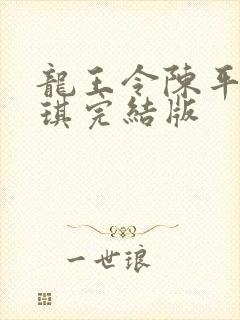 龍王令陳平
琪完結版
一世琅